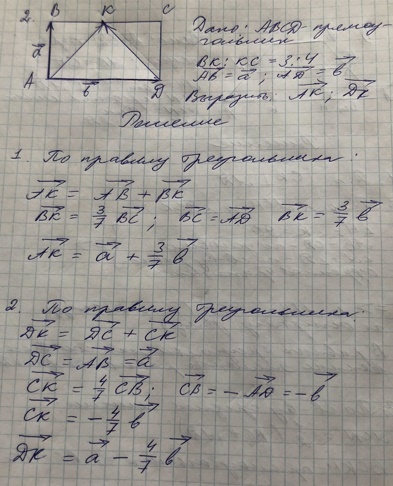 2. B K C
a⃗
A b⃗ D
Дано: ABCD - прямоу-
гольник
BK : KC = 3 : 4
AB⃗ = a⃗ ; AD⃗ = b⃗
Выразить: AK⃗ ; DK⃗
Решение
1. По правилу треугольника:
AK⃗ = AB⃗ + BK⃗
BK⃗ = 3/7 BC⃗ ; BC⃗ = AD⃗ BK⃗ = 3/7 b⃗
AK⃗ = a⃗ + 3/7 b⃗
2. По правилу треугольника:
DK⃗ = DC⃗ + CK⃗
DC⃗ = AB⃗ = a⃗
CK⃗ = 4/7 CB⃗ ; CB⃗ = - AD⃗ = - b⃗
CK⃗ = - 4/7 b⃗
DK⃗ = a⃗ - 4/7 b⃗